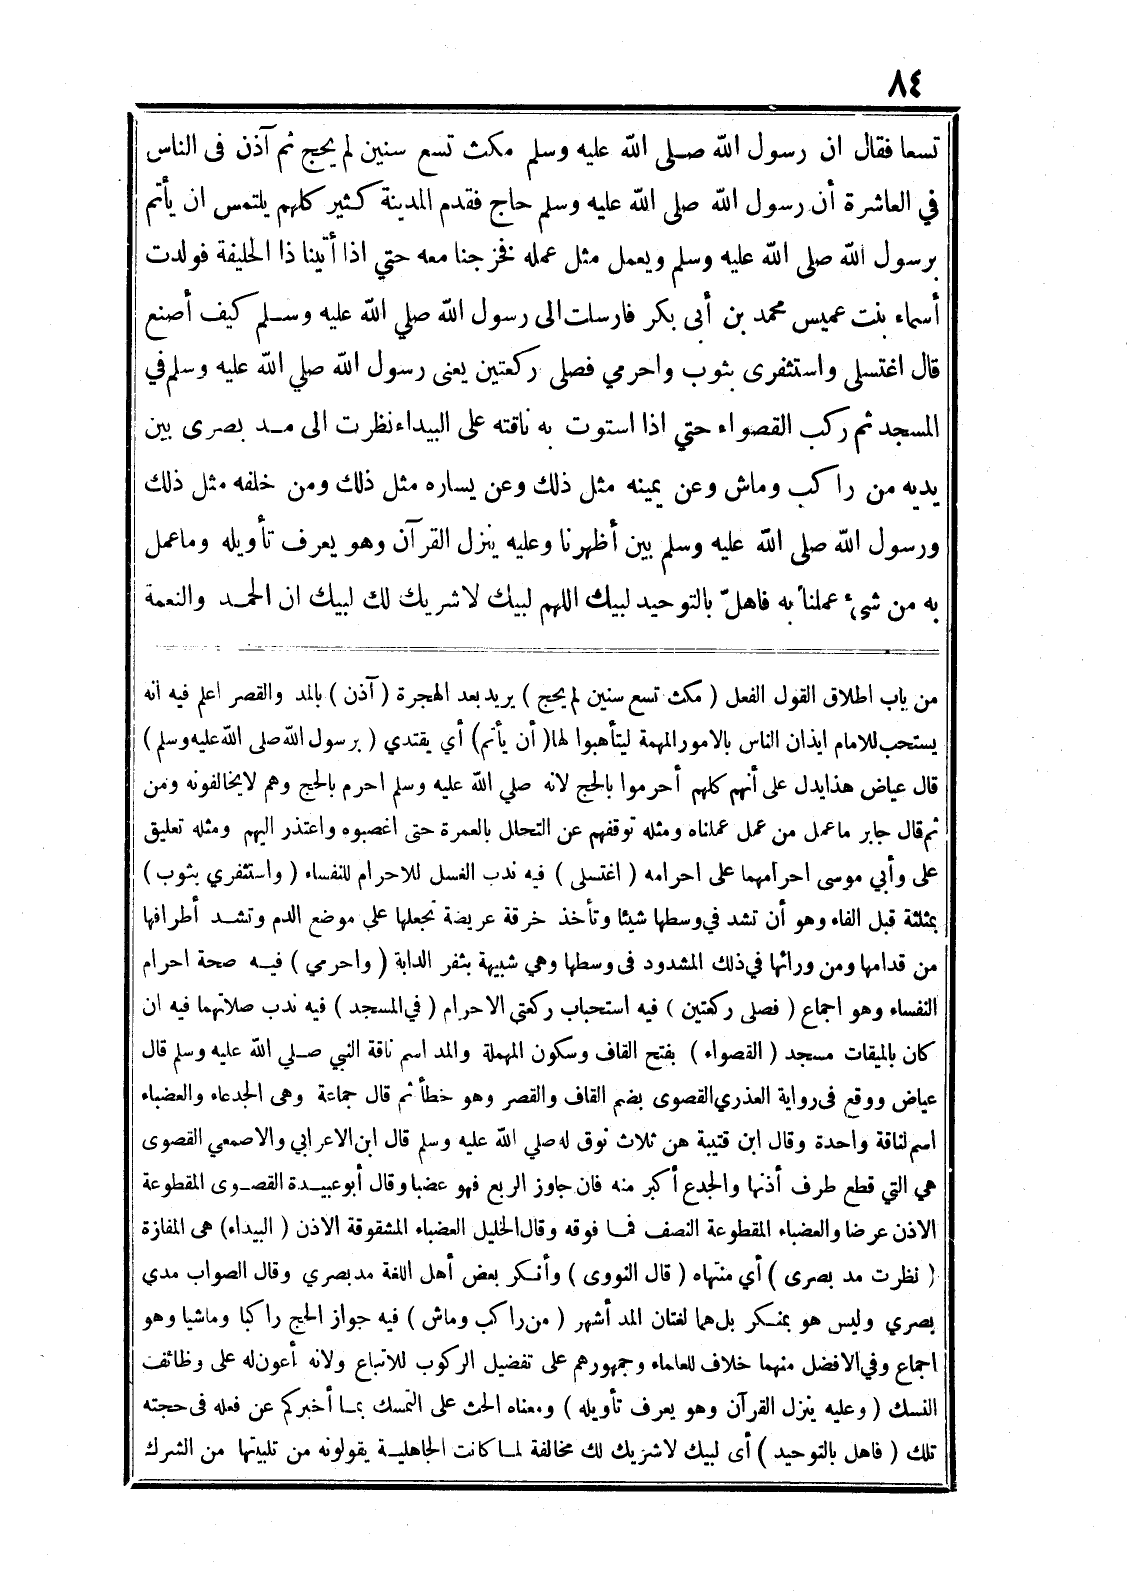 ٨٤
تسعا فقال ان رسول الله صلى الله عليه وسلم مكث تسع سنين لم يحج ثم آذن فى الناس
في العاشرة أن رسول الله صلى الله عليه وسلم حاج فقدم المدينة كثير كلهم يلتمس ان يأتم
برسول الله صلى الله عليه وسلم ويعمل مثل عمله فخرجنا معه حتي اذا أتينا ذا الحليفة فولدت
أسماء بنت عميس محمد بن أبى بكر فارسلت الى رسول الله صلي الله عليه وسلم كيف أصنع
قال اغتسلى واستثفرى بثوب واحرمي فصلى ركعتين يعنى رسول الله صلي الله عليه وسلم في
المسجد ثم ركب القصواء حتي اذا استوت به ناقته على البيداء نظرت الى مد بصرى بين
يديه من راكب وماش وعن يمينه مثل ذلك وعن يساره مثل ذلك ومن خلفه مثل ذلك
ورسول الله صلى الله عليه وسلم بين أظهرنا وعليه ينزل القرآن وهو يعرف تأويله وماعمل
به من شئ عملنا به فاهلّ بالتوحيد لبيك اللهم لبيك لاشريك لك لبيك ان الحمد والنعمة
من باب اطلاق القول الفعل ( مكث تسع سنين لم يحج ) يريد بعد الهجرة ( آذن ) بالمد والقصر اعلم فيه أنه
يستحب للامام ايذان الناس بالامور المهمة ليتأهبوا لها ( أن يأتم ) أي يقتدي ( برسول الله صلى الله عليه وسلم )
قال عياض هذا يدل على أنهم كلهم أحرموا بالحج لانه صلي الله عليه وسلم احرم بالحج وهم لايخالفونه ومن
ثم قال جابر ماعمل من عمل عملناه ومثله توقفهم عن التحلل بالعمرة حتى اغصبوه واعتذر اليهم ومثله تعليق
على وأبي موسى احرامهما على احرامه ( اغتسلى ) فيه ندب الغسل للاحرام للنفساء ( واستثفري بثوب )
بمثلثة قبل الفاء وهو أن تشد في وسطها شيئا وتأخذ خرقة عريضة تجعلها علي موضع الدم وتشد أطرافها
من قدامها ومن ورائها في ذلك المشدود فى وسطها وهي شبيهة بثفر الدابة ( واحرمي ) فيه صحة احرام
النفساء وهو اجماع ( فصلى ركعتين ) فيه استحباب ركعتي الاحرام ( في المسجد ) فيه ندب صلاتهما فيه ان
كان بالميقات مسجد ( القصواء ) بفتح القاف وسكون المهملة والمد اسم ناقة النبي صلي الله عليه وسلم قال
عياض ووقع فى رواية العذري القصوى بضم القاف والقصر وهو خطأ ثم قال جماعة وهى الجدعاء والعضباء
اسم لناقة واحدة وقال ابن قتيبة هن ثلاث نوق له صلي الله عليه وسلم قال ابن الاعرابي والاصمعي القصوى
هي التي قطع طرف أذنها والجدع أكبر منه فان جاوز الربع فهو عضبا وقال أبو عبيدة القصوى المقطوعة
الاذن عرضا والعضباء المقطوعة النصف فما فوقه وقال الخليل العضباء المشقوقة الاذن ( البيداء ) هى المفازة
( نظرت مد بصرى ) أي منتهاه ( قال النووى ) وأنكر بعض أهل اللغة مد بصري وقال الصواب مدي
بصري وليس هو بمنكر بل هما لغتان المد أشهر ( من راكب وماش ) فيه جواز الحج راكبا وماشيا وهو
اجماع وفي الافضل منهما خلاف للعلماء وجمهورهم على تفضيل الركوب للاتباع ولانه أعون له على وظائف
النسك ( وعليه ينزل القرآن وهو يعرف تأويله ) ومعناه الحث على التمسك بما أخبركم عن فعله فى حجته
تلك ( فاهل بالتوحيد ) أى لبيك لاشريك لك مخالفة لما كانت الجاهلية يقولونه من تلبيتها من الشرك